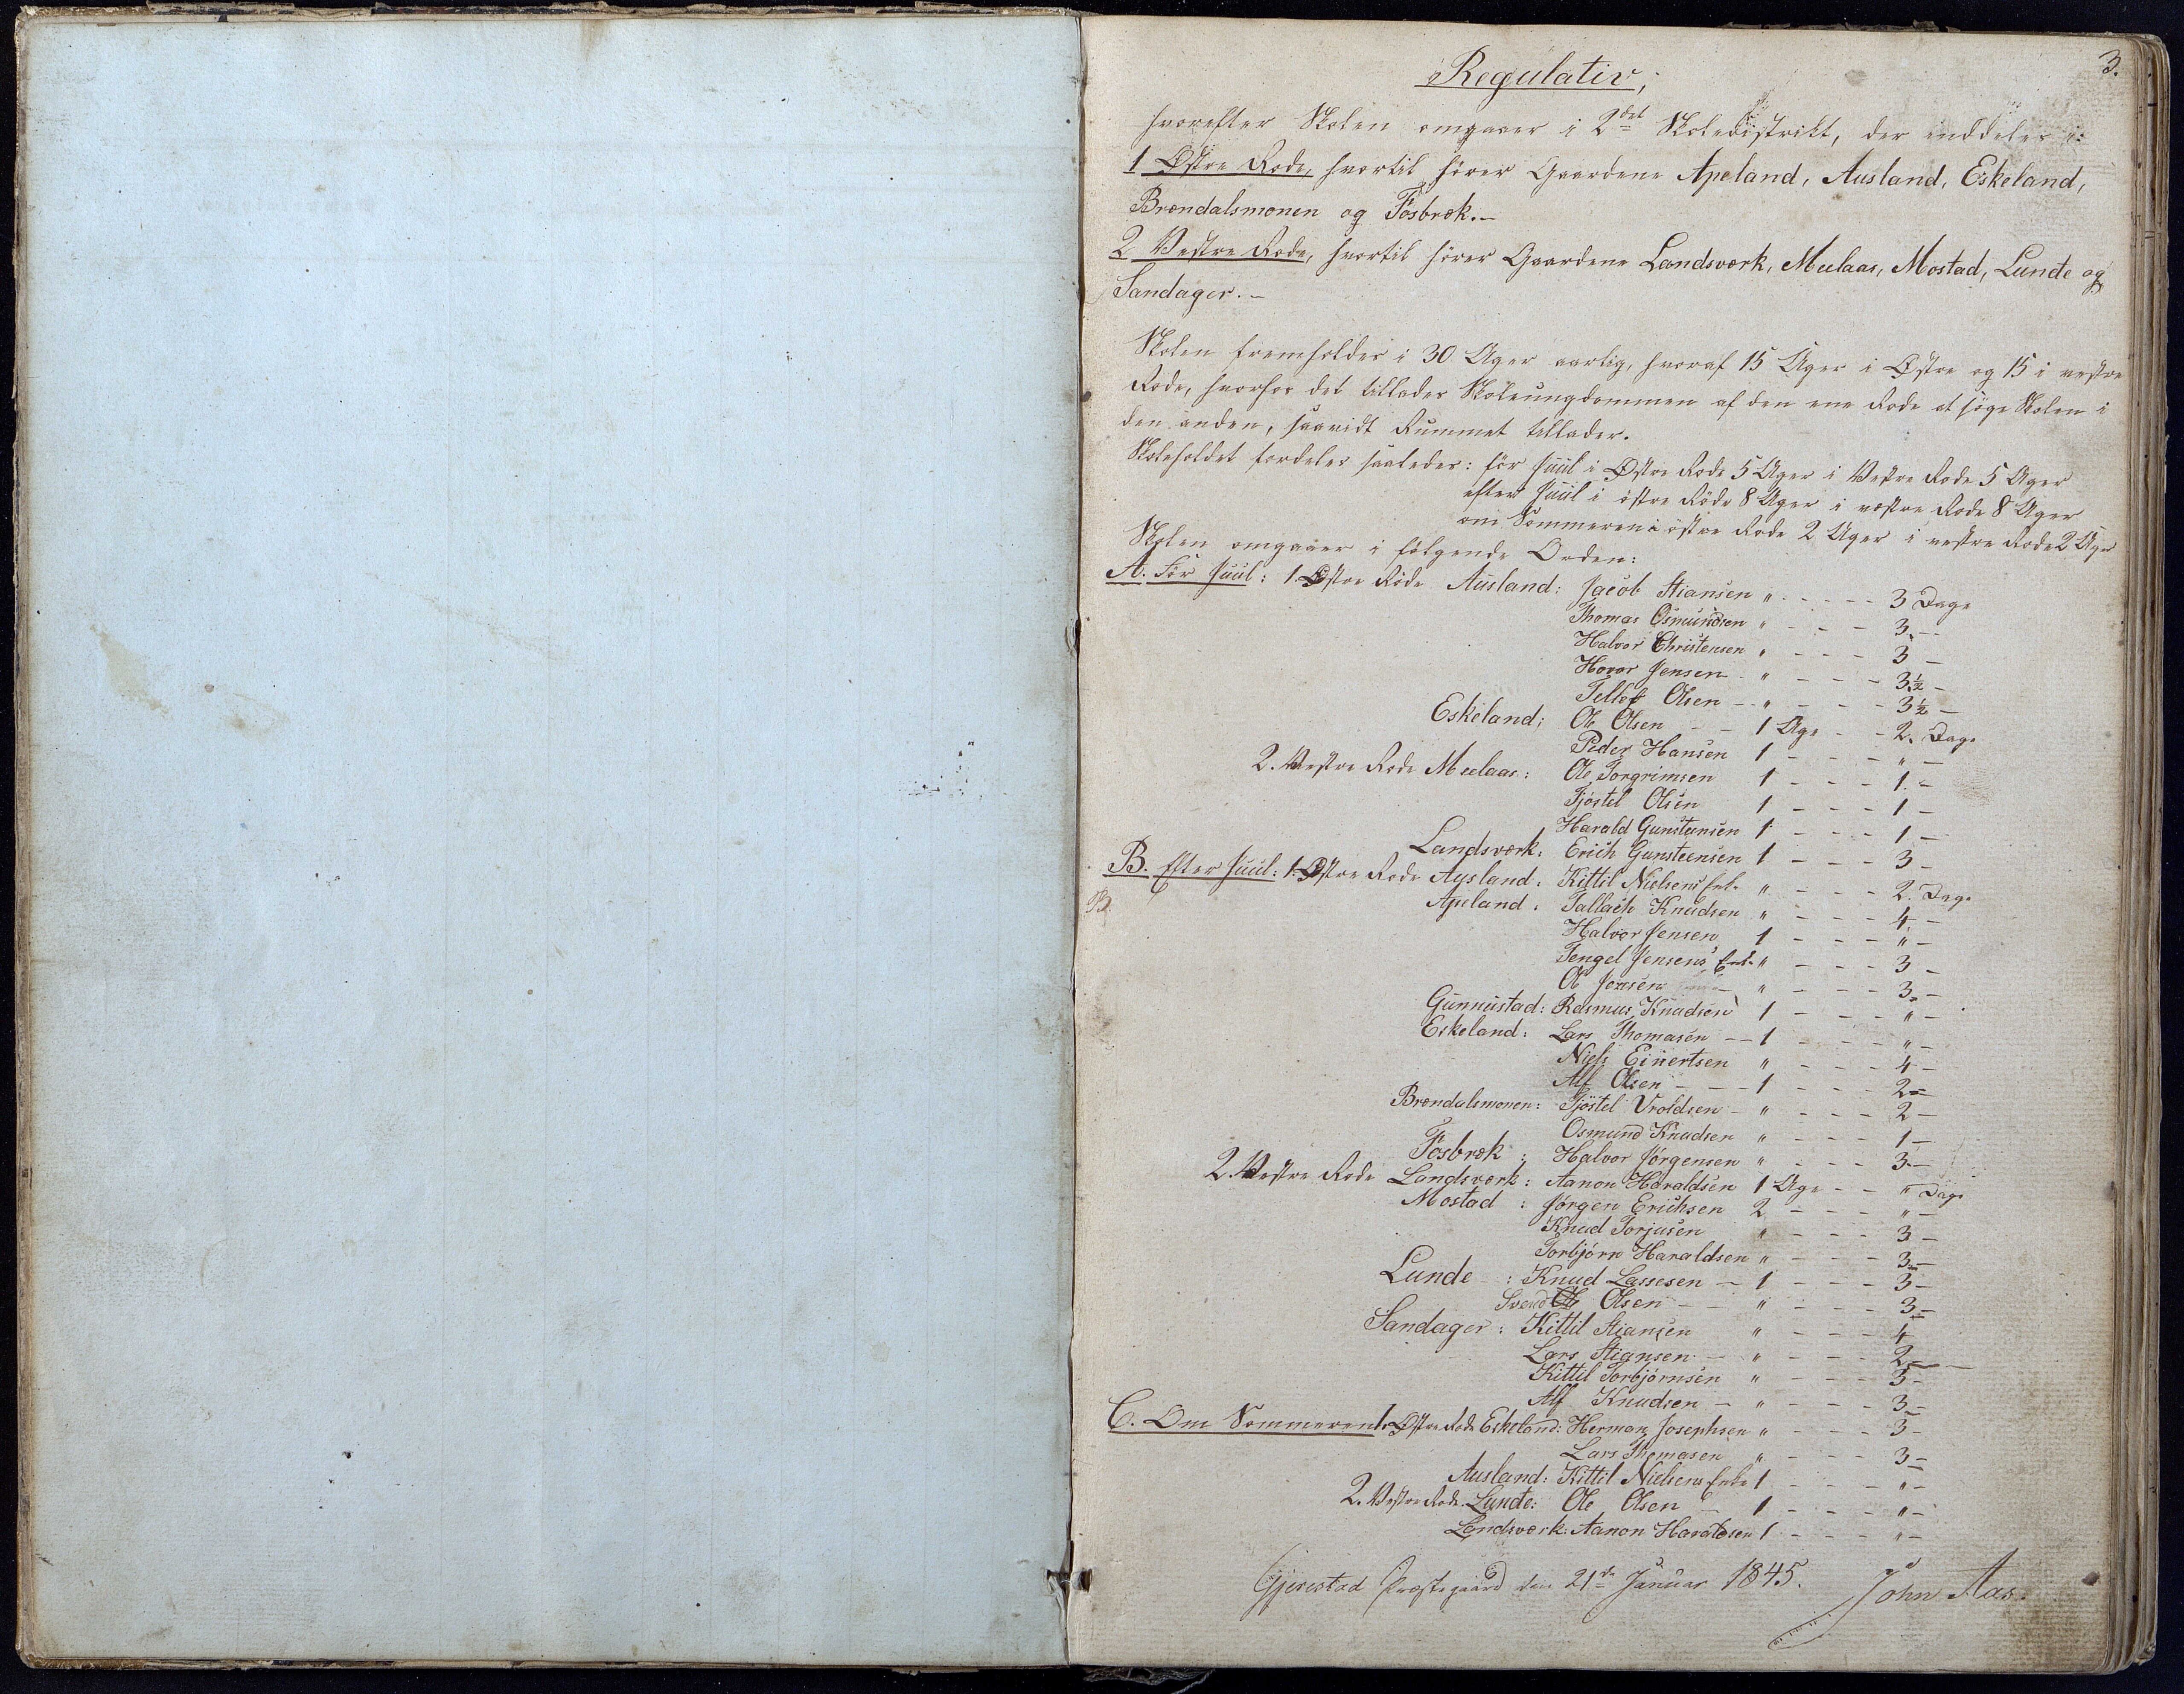 3.
Regulativ,
hvorefter Skolen omgaaer i 2det Skoledistrikt, der inddeles i:
1 Østre Rode, hvortil hörer Gaardene Apeland, Ausland, Eskeland,
Brændalsmonen og Fosbræk.-
2 Vestre Rode, hvortil hörer Gaardene Landsværk, Meelaas, Mostad, Lunde og
Sandager.-
Skolen fremholdes i 30 Uger aarlig, hvoraf 15 Uger i Østre og 15 i vestre
Rode, hvorhos det tillades Skoleungdommen af den ene Rode at söge Skolen i
den anden, saavidt Rummet tillader.
Skoleholdet fordeles saaledes: för Juul i Østre Rode 5 Uger i Vestre Rode 5 Uger
efter Juul i östre Rode 8 Uger i vestre Rode 8 Uger
om Sommeren i östre Rode 2 Uger i vestre Rode 2 Uger
Skolen omgaaer i fölgende Orden:
A. För Juul: 1. Østre Rode Ausland: Jacob Stiansen " - - - - 3 Dage
Thomas Osmundsen " - - - 3 -
Halvor Christensen " - - - 3 -
Hovor Jensen " - - - 3½ -
Tellef Olsen - " - - - 3½ -
Eskeland: Ole Olsen - - 1 Uge - - 2 Dage
Peder Hansen 1 - - - " -
2. Vestre Rode Meelaas: Ole Torgrimsen 1 - - - 1 -
Tjöstel Olsen 1 - - - 1 -
Harald Gunstensen 1 - - - 1 -
Landsværk: Erich Gunsteensen 1 - - - 3 -
B. Efter Juul: 1. Østre Rode Aysland: Kittil Nielsens Enke " - - - 2 Dage
B.
Apeland: Tallach Knudsen " - - - 4 -
Halvor Jensen 1 - - - " -
Tengel Jensens Enke " - - - 3 -
Ole Jensen " - - - 3 -
Gunnustad: Rasmus Knudsen 1 - - - " -
Eskeland: Lars Thomasen - - 1 - - - " -
Niels Einertsen " - - - 4 -
Alf Olsen - - - 1 - - - 2 -
Brændalsmonen: Tjöstel Vroldsen - " - - - 2 -
Osmund Knudsen " - - - 1 -
Fosbræk: Halvor Jörgensen " - - - 3 -
2. Vestre Rode Landsværk: Aanon Haraldsen 1 Uge - - " Dage
Mostad: Jörgen Erichsen 2 - - - " -
Knud Torjusen " - - - 3 -
Torbjörn Haraldsen " - - - 3 -
Lunde: Knud Lassesen - 1 - - - 3 -
Svend Olsen - - " - - - 3 -
Sandager: Kittil Stiansen " - - - 4 -
Lars Stiansen - " - - - 2 -
Kittil Torbjörnsen " - - - 3 -
Alf Knudsen - " - - - 3 -
C. Om Sommeren 1. Østre Rode Eskeland: Herman Josephsen " - - - 3 -
Lars Thomasen " - - - 3 -
Ausland: Kittil Nielsens Enke 1 - - - " -
2. Vestre Rode Lunde: Ole Olsen - 1 - - - " -
Landsværk: Aanon Haraldsen 1 - - - " -
Gjerestad Præstegaard den 21de Januar 1845. John Aas.